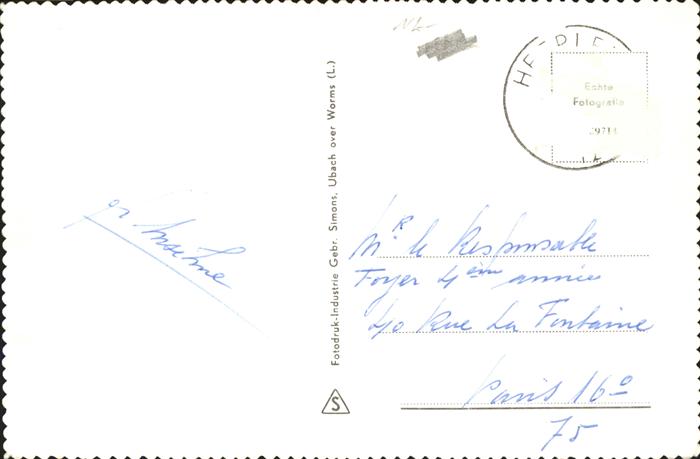 NL
HE RLE
Echte
Fotografie
Fotodruk-Industrie Gebr. Simons, Ubach over Worms (L.)
S
Mr le Responsable
Foyer 4ème année
40 Rue La Fontaine
Paris 16e
75